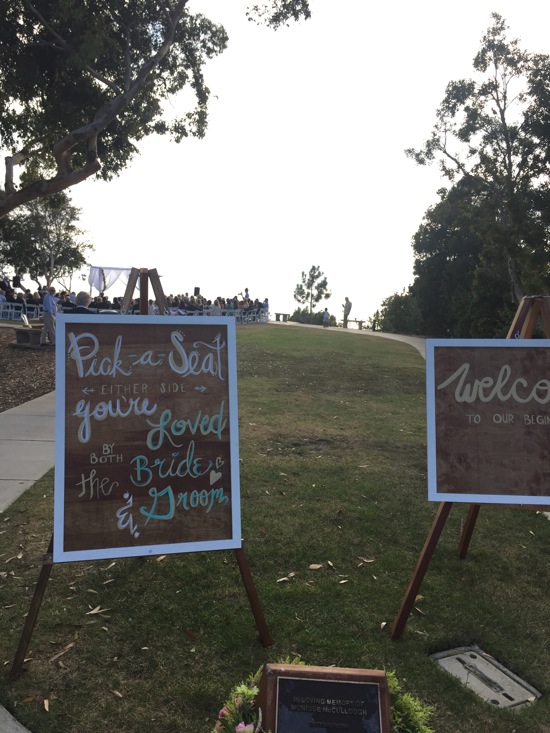 Pick-a-Seat
← EITHER SIDE →
you're
Loved
BY BOTH
the Bride
& Groom
Welco
TO OUR BEGIN
IN LOVING MEMORY OF